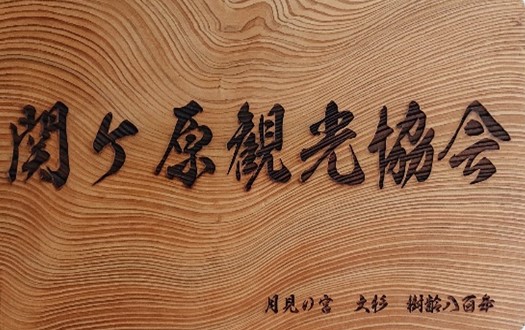 関ケ原観光協会
月見の宮 大杉 樹齢八百年